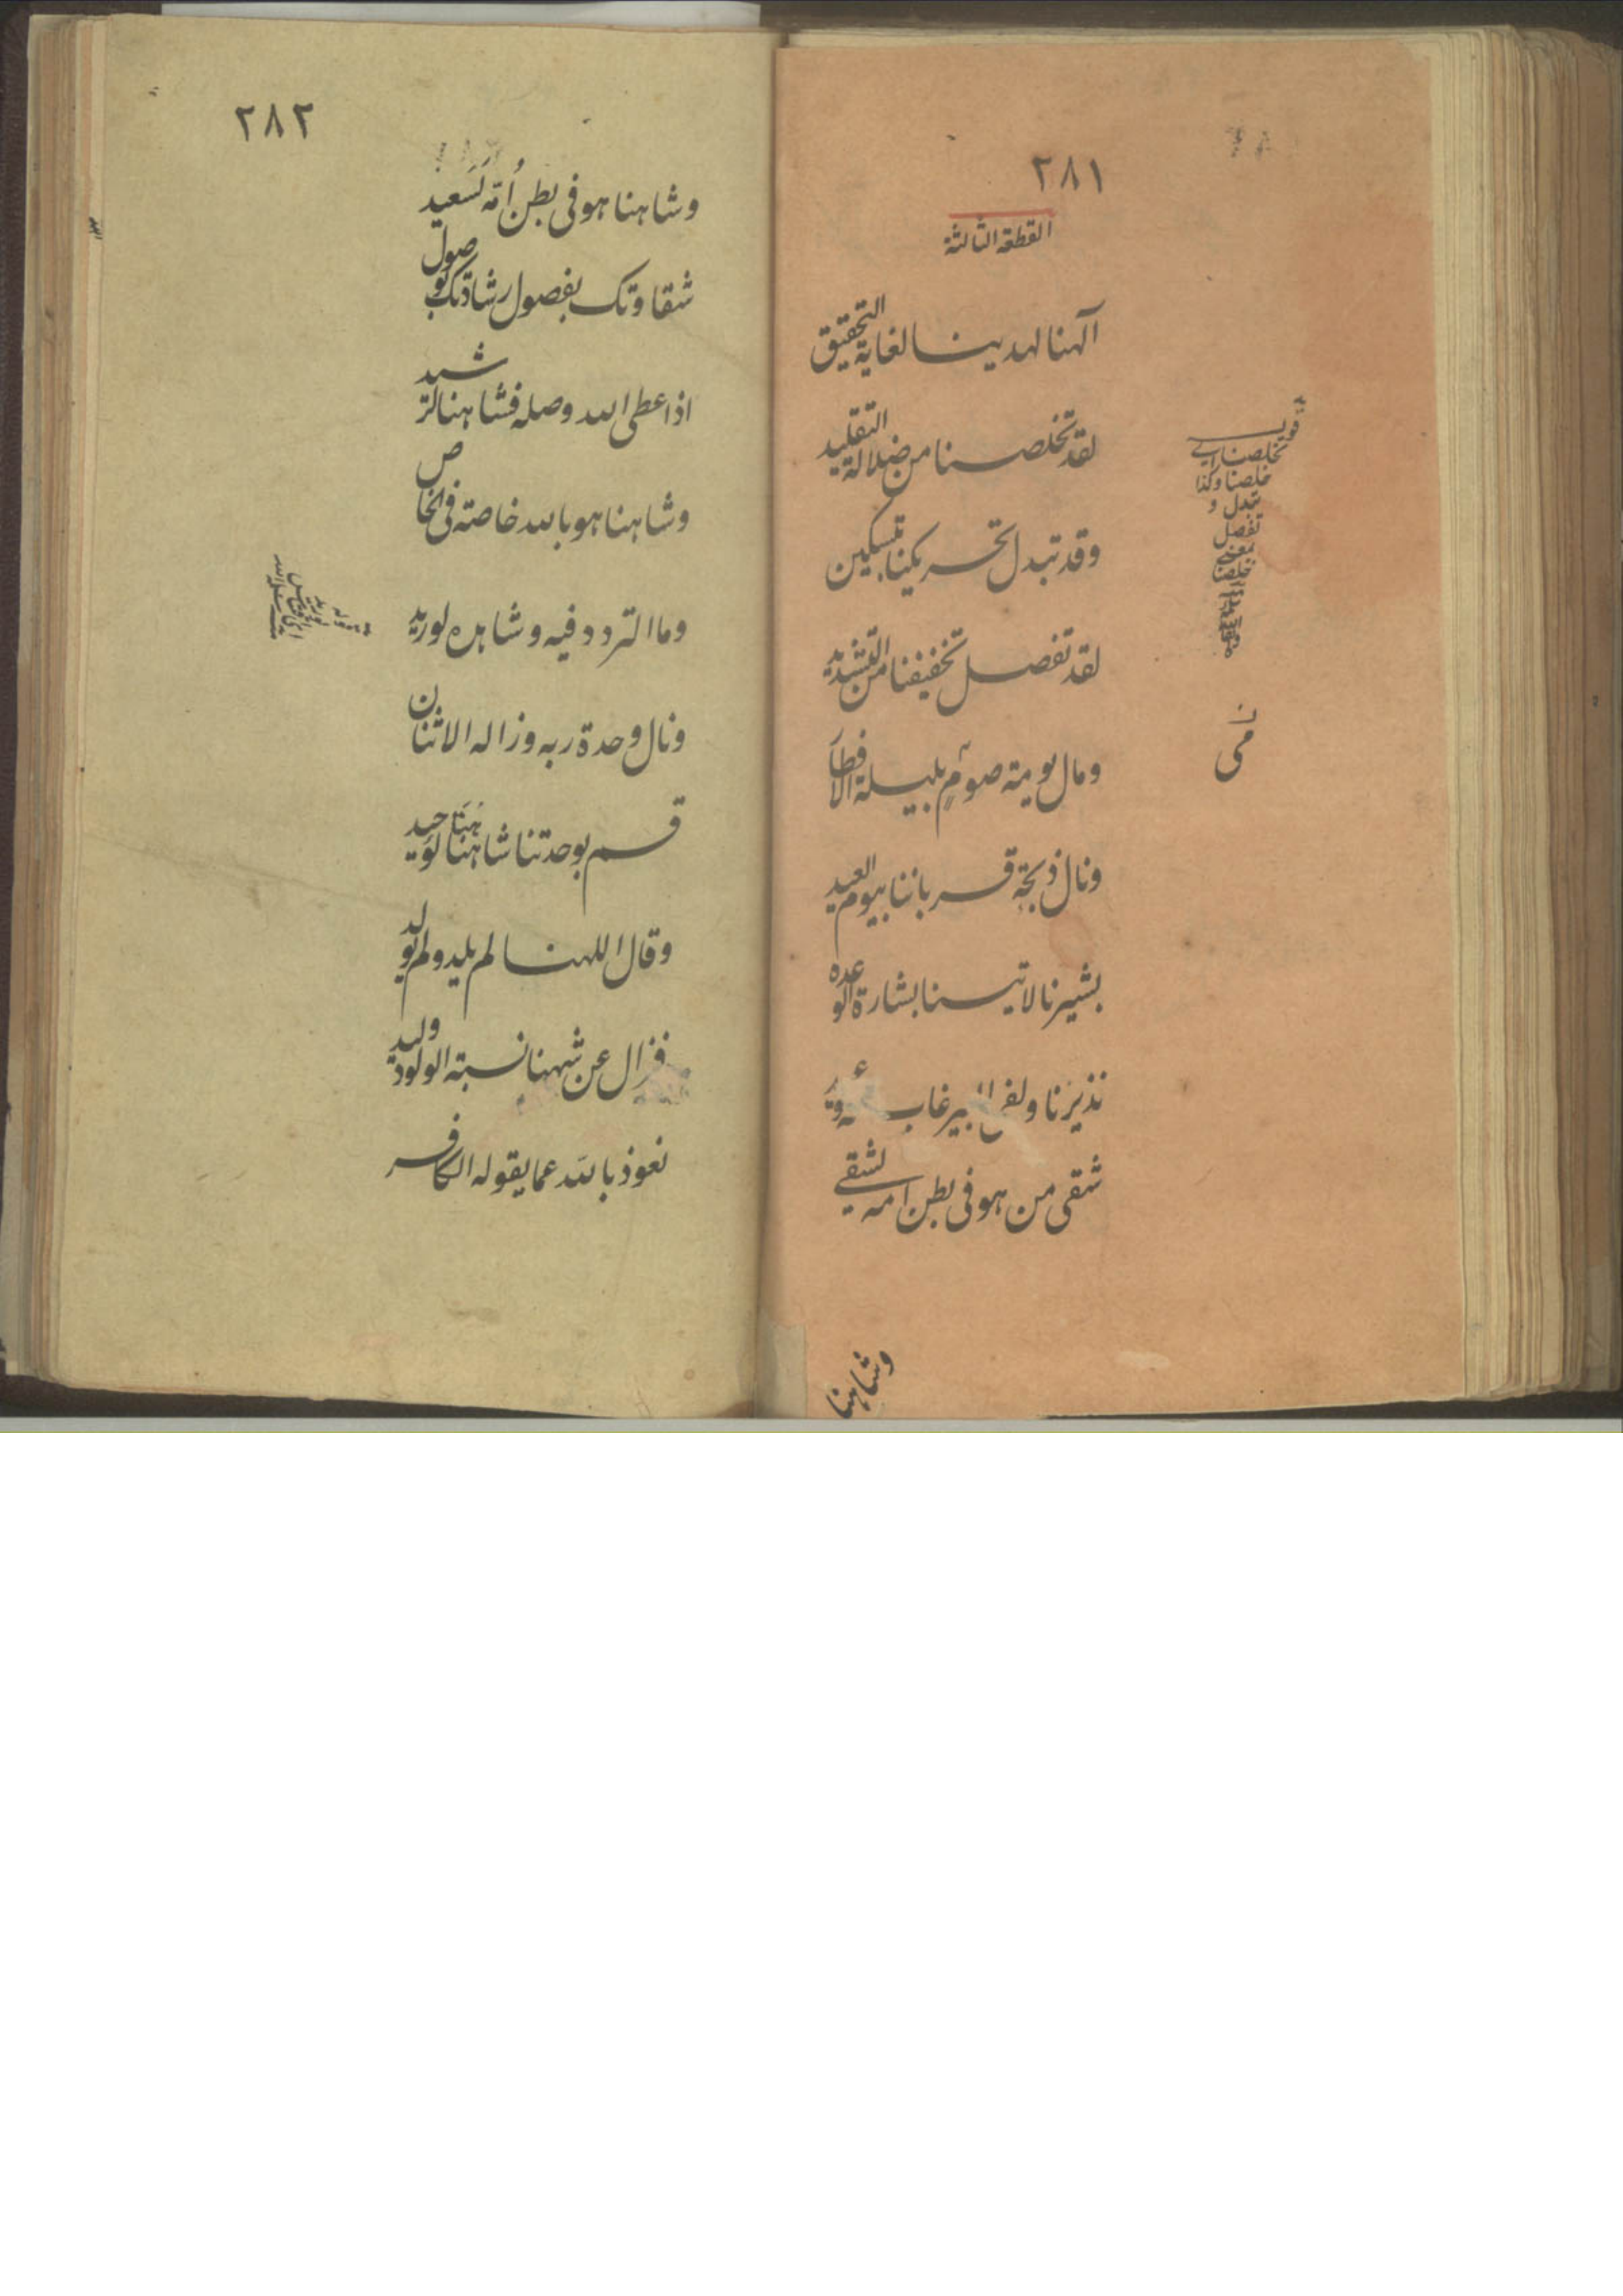 ٢٨١
القطعة الثالثة
آلهنا لهدينا لغاية التحقيق
لقد تخلصنا من ضلالة التقليد
وقد تبدل تحريكنا بتسكين
لقد تفصل تخفيفنا من التشديد
ومال يومية صوم بليلة الافطار
ونال ذبحة قرباننا بيوم العيد
بشيرنا لاتينا بشارة الوعده
نذيرنا غاب
شقى من هو فى بطن امه لشقي
قوله
تخلصنا اى
خلصنا وكذا
تبدل و
تفصل
بمعنى
خلصنا
وشاهنا
٢٨٢
وشاهنا هو فى بطن أمّه لسَعيد
شقاوتك بفصول رشادتك بوصول
اذا عطى الله وصله فشاهنا لرشيد
وشاهنا هو بالله خاصته فى الخاص
وما التردد فيه وشاهده لوريد
ونال وحدة ربه وزاله الاثنان
قسم بوحدتنا شاهنا لوَحيد
وقال اللهنا لم يلد ولم يولد
فزال عن شهنا نسبة الولود وليد
نعوذ بالله عما يقوله الكافر